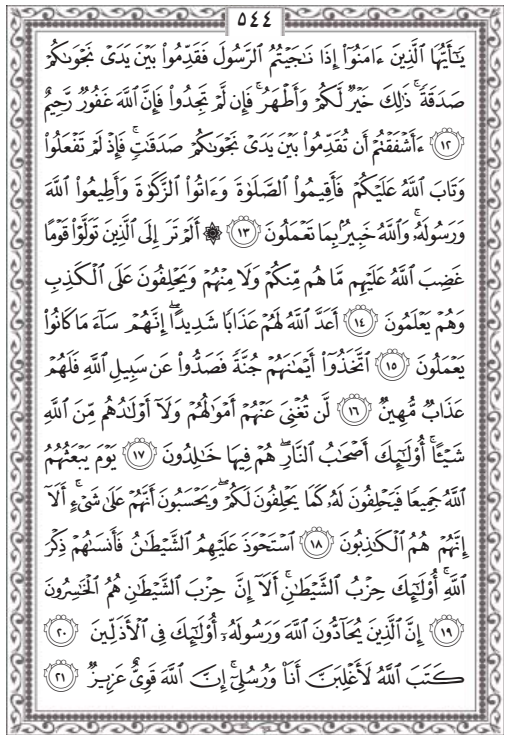 ٥٤٤
يَٰٓأَيُّهَا ٱلَّذِينَ ءَامَنُوٓا۟ إِذَا نَٰجَيْتُمُ ٱلرَّسُولَ فَقَدِّمُوا۟ بَيْنَ يَدَىْ نَجْوَىٰكُمْ
صَدَقَةً ۚ ذَٰلِكَ خَيْرٌ لَّكُمْ وَأَطْهَرُ ۚ فَإِن لَّمْ تَجِدُوا۟ فَإِنَّ ٱللَّهَ غَفُورٌ رَّحِيمٌ
١٢ ءَأَشْفَقْتُمْ أَن تُقَدِّمُوا۟ بَيْنَ يَدَىْ نَجْوَىٰكُمْ صَدَقَٰتٍ ۚ فَإِذْ لَمْ تَفْعَلُوا۟
وَتَابَ ٱللَّهُ عَلَيْكُمْ فَأَقِيمُوا۟ ٱلصَّلَوٰةَ وَءَاتُوا۟ ٱلزَّكَوٰةَ وَأَطِيعُوا۟ ٱللَّهَ
وَرَسُولَهُۥ ۚ وَٱللَّهُ خَبِيرٌۢ بِمَا تَعْمَلُونَ ١٣ ۞ أَلَمْ تَرَ إِلَى ٱلَّذِينَ تَوَلَّوْا۟ قَوْمًا
غَضِبَ ٱللَّهُ عَلَيْهِم مَّا هُم مِّنكُمْ وَلَا مِنْهُمْ وَيَحْلِفُونَ عَلَى ٱلْكَذِبِ
وَهُمْ يَعْلَمُونَ ١٤ أَعَدَّ ٱللَّهُ لَهُمْ عَذَابًا شَدِيدًا ۖ إِنَّهُمْ سَآءَ مَا كَانُوا۟
يَعْمَلُونَ ١٥ ٱتَّخَذُوٓا۟ أَيْمَٰنَهُمْ جُنَّةً فَصَدُّوا۟ عَن سَبِيلِ ٱللَّهِ فَلَهُمْ
عَذَابٌ مُّهِينٌ ١٦ لَّن تُغْنِىَ عَنْهُمْ أَمْوَٰلُهُمْ وَلَآ أَوْلَٰدُهُم مِّنَ ٱللَّهِ
شَيْـًٔا ۚ أُو۟لَٰٓئِكَ أَصْحَٰبُ ٱلنَّارِ ۖ هُمْ فِيهَا خَٰلِدُونَ ١٧ يَوْمَ يَبْعَثُهُمُ
ٱللَّهُ جَمِيعًا فَيَحْلِفُونَ لَهُۥ كَمَا يَحْلِفُونَ لَكُمْ ۖ وَيَحْسَبُونَ أَنَّهُمْ عَلَىٰ شَىْءٍ ۚ أَلَآ
إِنَّهُمْ هُمُ ٱلْكَٰذِبُونَ ١٨ ٱسْتَحْوَذَ عَلَيْهِمُ ٱلشَّيْطَٰنُ فَأَنسَىٰهُمْ ذِكْرَ
ٱللَّهِ ۚ أُو۟لَٰٓئِكَ حِزْبُ ٱلشَّيْطَٰنِ ۚ أَلَآ إِنَّ حِزْبَ ٱلشَّيْطَٰنِ هُمُ ٱلْخَٰسِرُونَ
١٩ إِنَّ ٱلَّذِينَ يُحَآدُّونَ ٱللَّهَ وَرَسُولَهُۥٓ أُو۟لَٰٓئِكَ فِى ٱلْأَذَلِّينَ ٢٠
كَتَبَ ٱللَّهُ لَأَغْلِبَنَّ أَنَا۠ وَرُسُلِىٓ ۚ إِنَّ ٱللَّهَ قَوِىٌّ عَزِيزٌ ٢١